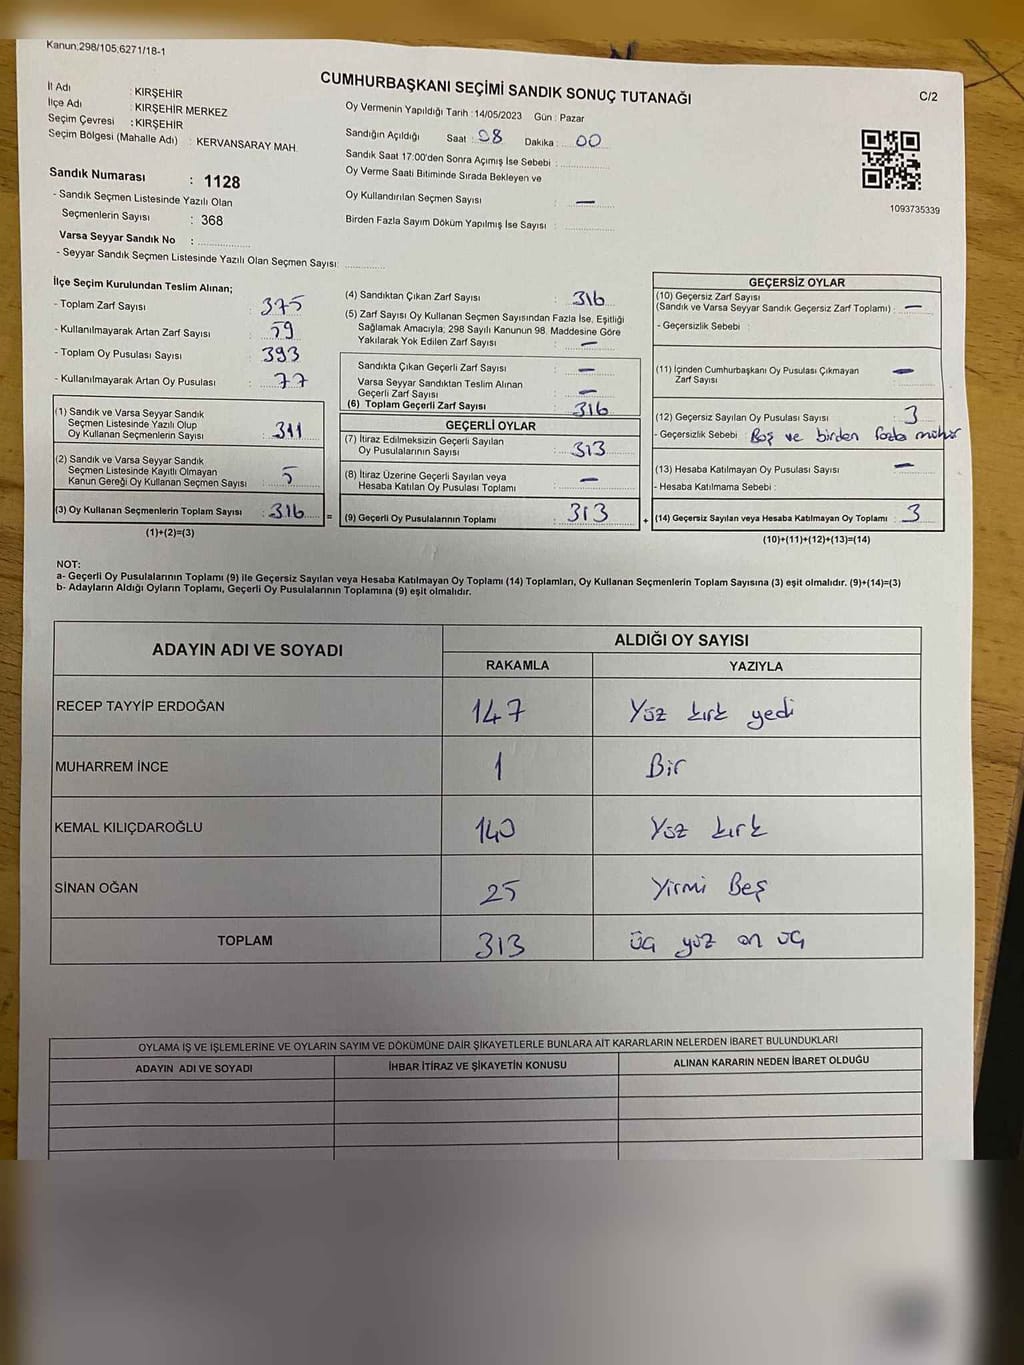 Kanun;298/105,6271/18-1
CUMHURBAŞKANI SEÇİMİ SANDIK SONUÇ TUTANAĞI
C/2
İl Adı : KIRŞEHİR
İlçe Adı : KIRŞEHİR MERKEZ
Seçim Çevresi : KIRŞEHİR
Seçim Bölgesi (Mahalle Adı) : KERVANSARAY MAH.
Oy Vermenin Yapıldığı Tarih : 14/05/2023 Gün : Pazar
Sandığın Açıldığı Saat : 08 Dakika : 00
Sandık Saat 17:00'den Sonra Açımış İse Sebebi :
Oy Verme Saati Bitiminde Sırada Bekleyen ve
Oy Kullandırılan Seçmen Sayısı : —
Birden Fazla Sayım Döküm Yapılmış İse Sayısı :
1093735339
Sandık Numarası : 1128
- Sandık Seçmen Listesinde Yazılı Olan
Seçmenlerin Sayısı : 368
Varsa Seyyar Sandık No :
- Seyyar Sandık Seçmen Listesinde Yazılı Olan Seçmen Sayısı:
İlçe Seçim Kurulundan Teslim Alınan;
- Toplam Zarf Sayısı : 375
- Kullanılmayarak Artan Zarf Sayısı : 59
- Toplam Oy Pusulası Sayısı : 393
- Kullanılmayarak Artan Oy Pusulası : 77
(1) Sandık ve Varsa Seyyar Sandık
Seçmen Listesinde Yazılı Olup
Oy Kullanan Seçmenlerin Sayısı : 311
(2) Sandık ve Varsa Seyyar Sandık
Seçmen Listesinde Kayıtlı Olmayan
Kanun Gereği Oy Kullanan Seçmen Sayısı : 5
(3) Oy Kullanan Seçmenlerin Toplam Sayısı : 316
(1)+(2)=(3)
(4) Sandıktan Çıkan Zarf Sayısı : 316
(5) Zarf Sayısı Oy Kullanan Seçmen Sayısından Fazla İse, Eşitliği
Sağlamak Amacıyla; 298 Sayılı Kanunun 98. Maddesine Göre
Yakılarak Yok Edilen Zarf Sayısı : —
Sandıkta Çıkan Geçerli Zarf Sayısı : —
Varsa Seyyar Sandıktan Teslim Alınan
Geçerli Zarf Sayısı : —
(6) Toplam Geçerli Zarf Sayısı : 316
GEÇERLİ OYLAR
(7) İtiraz Edilmeksizin Geçerli Sayılan
Oy Pusulalarının Sayısı : 313
(8) İtiraz Üzerine Geçerli Sayılan veya
Hesaba Katılan Oy Pusulası Toplamı : —
= (9) Geçerli Oy Pusulalarının Toplamı : 313
GEÇERSİZ OYLAR
(10) Geçersiz Zarf Sayısı
(Sandık ve Varsa Seyyar Sandık Geçersiz Zarf Toplamı) : —
- Geçersizlik Sebebi :
(11) İçinden Cumhurbaşkanı Oy Pusulası Çıkmayan
Zarf Sayısı : —
(12) Geçersiz Sayılan Oy Pusulası Sayısı : 3
- Geçersizlik Sebebi : Boş ve birden fazla mühür
(13) Hesaba Katılmayan Oy Pusulası Sayısı : —
- Hesaba Katılmama Sebebi :
+ (14) Geçersiz Sayılan veya Hesaba Katılmayan Oy Toplamı : 3
(10)+(11)+(12)+(13)=(14)
NOT:
a- Geçerli Oy Pusulalarının Toplamı (9) ile Geçersiz Sayılan veya Hesaba Katılmayan Oy Toplamı (14) Toplamları, Oy Kullanan Seçmenlerin Toplam Sayısına (3) eşit olmalıdır. (9)+(14)=(3)
b- Adayların Aldığı Oyların Toplamı, Geçerli Oy Pusulalarının Toplamına (9) eşit olmalıdır.
ADAYIN ADI VE SOYADI ALDIĞI OY SAYISI
RAKAMLA YAZIYLA
RECEP TAYYİP ERDOĞAN 147 Yüz kırk yedi
MUHARREM İNCE 1 Bir
KEMAL KILIÇDAROĞLU 140 Yüz kırk
SİNAN OĞAN 25 Yirmi Beş
TOPLAM 313 üç yüz on üç
OYLAMA İŞ VE İŞLEMLERİNE VE OYLARIN SAYIM VE DÖKÜMÜNE DAİR ŞİKAYETLERLE BUNLARA AİT KARARLARIN NELERDEN İBARET BULUNDUKLARI
ADAYIN ADI VE SOYADI İHBAR İTİRAZ VE ŞİKAYETİN KONUSU ALINAN KARARIN NEDEN İBARET OLDUĞU